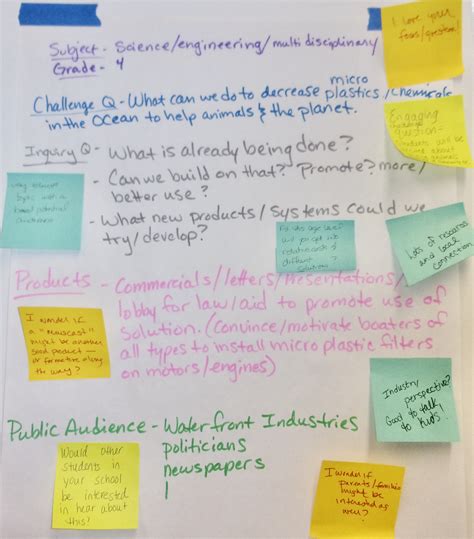 Subject - Science/engineering/multi disciplinary
Grade - 4
I love your
focus/question!
micro
Challenge Q - What can we do to decrease plastics/chemicals
in the Ocean to help animals & the planet.
Engaging
question -
will be
about
animals
Inquiry Q - What is already being done?
- Can we build on that? Promote? more/
better use?
- What new products/systems could we
try/develop?
topic with a
broad potential
audience
different
solutions
Lots of resources
and local
connections
Products - Commercials/letters/presentations/
lobby for law/aid to promote use of
solution. (convince/motivate boaters of
all types to install micro plastic filters
on motors/engines)
I wonder if
a "newscast"
might be another
good product —
or formative along
the way?
Industry
perspective?
Good to talk
to kids!
Public Audience - Waterfront Industries
politicians
newspapers
Would other
students in
your school
be interested
in hear about
this!
I wonder if
parents/families
might be
interested as
well?